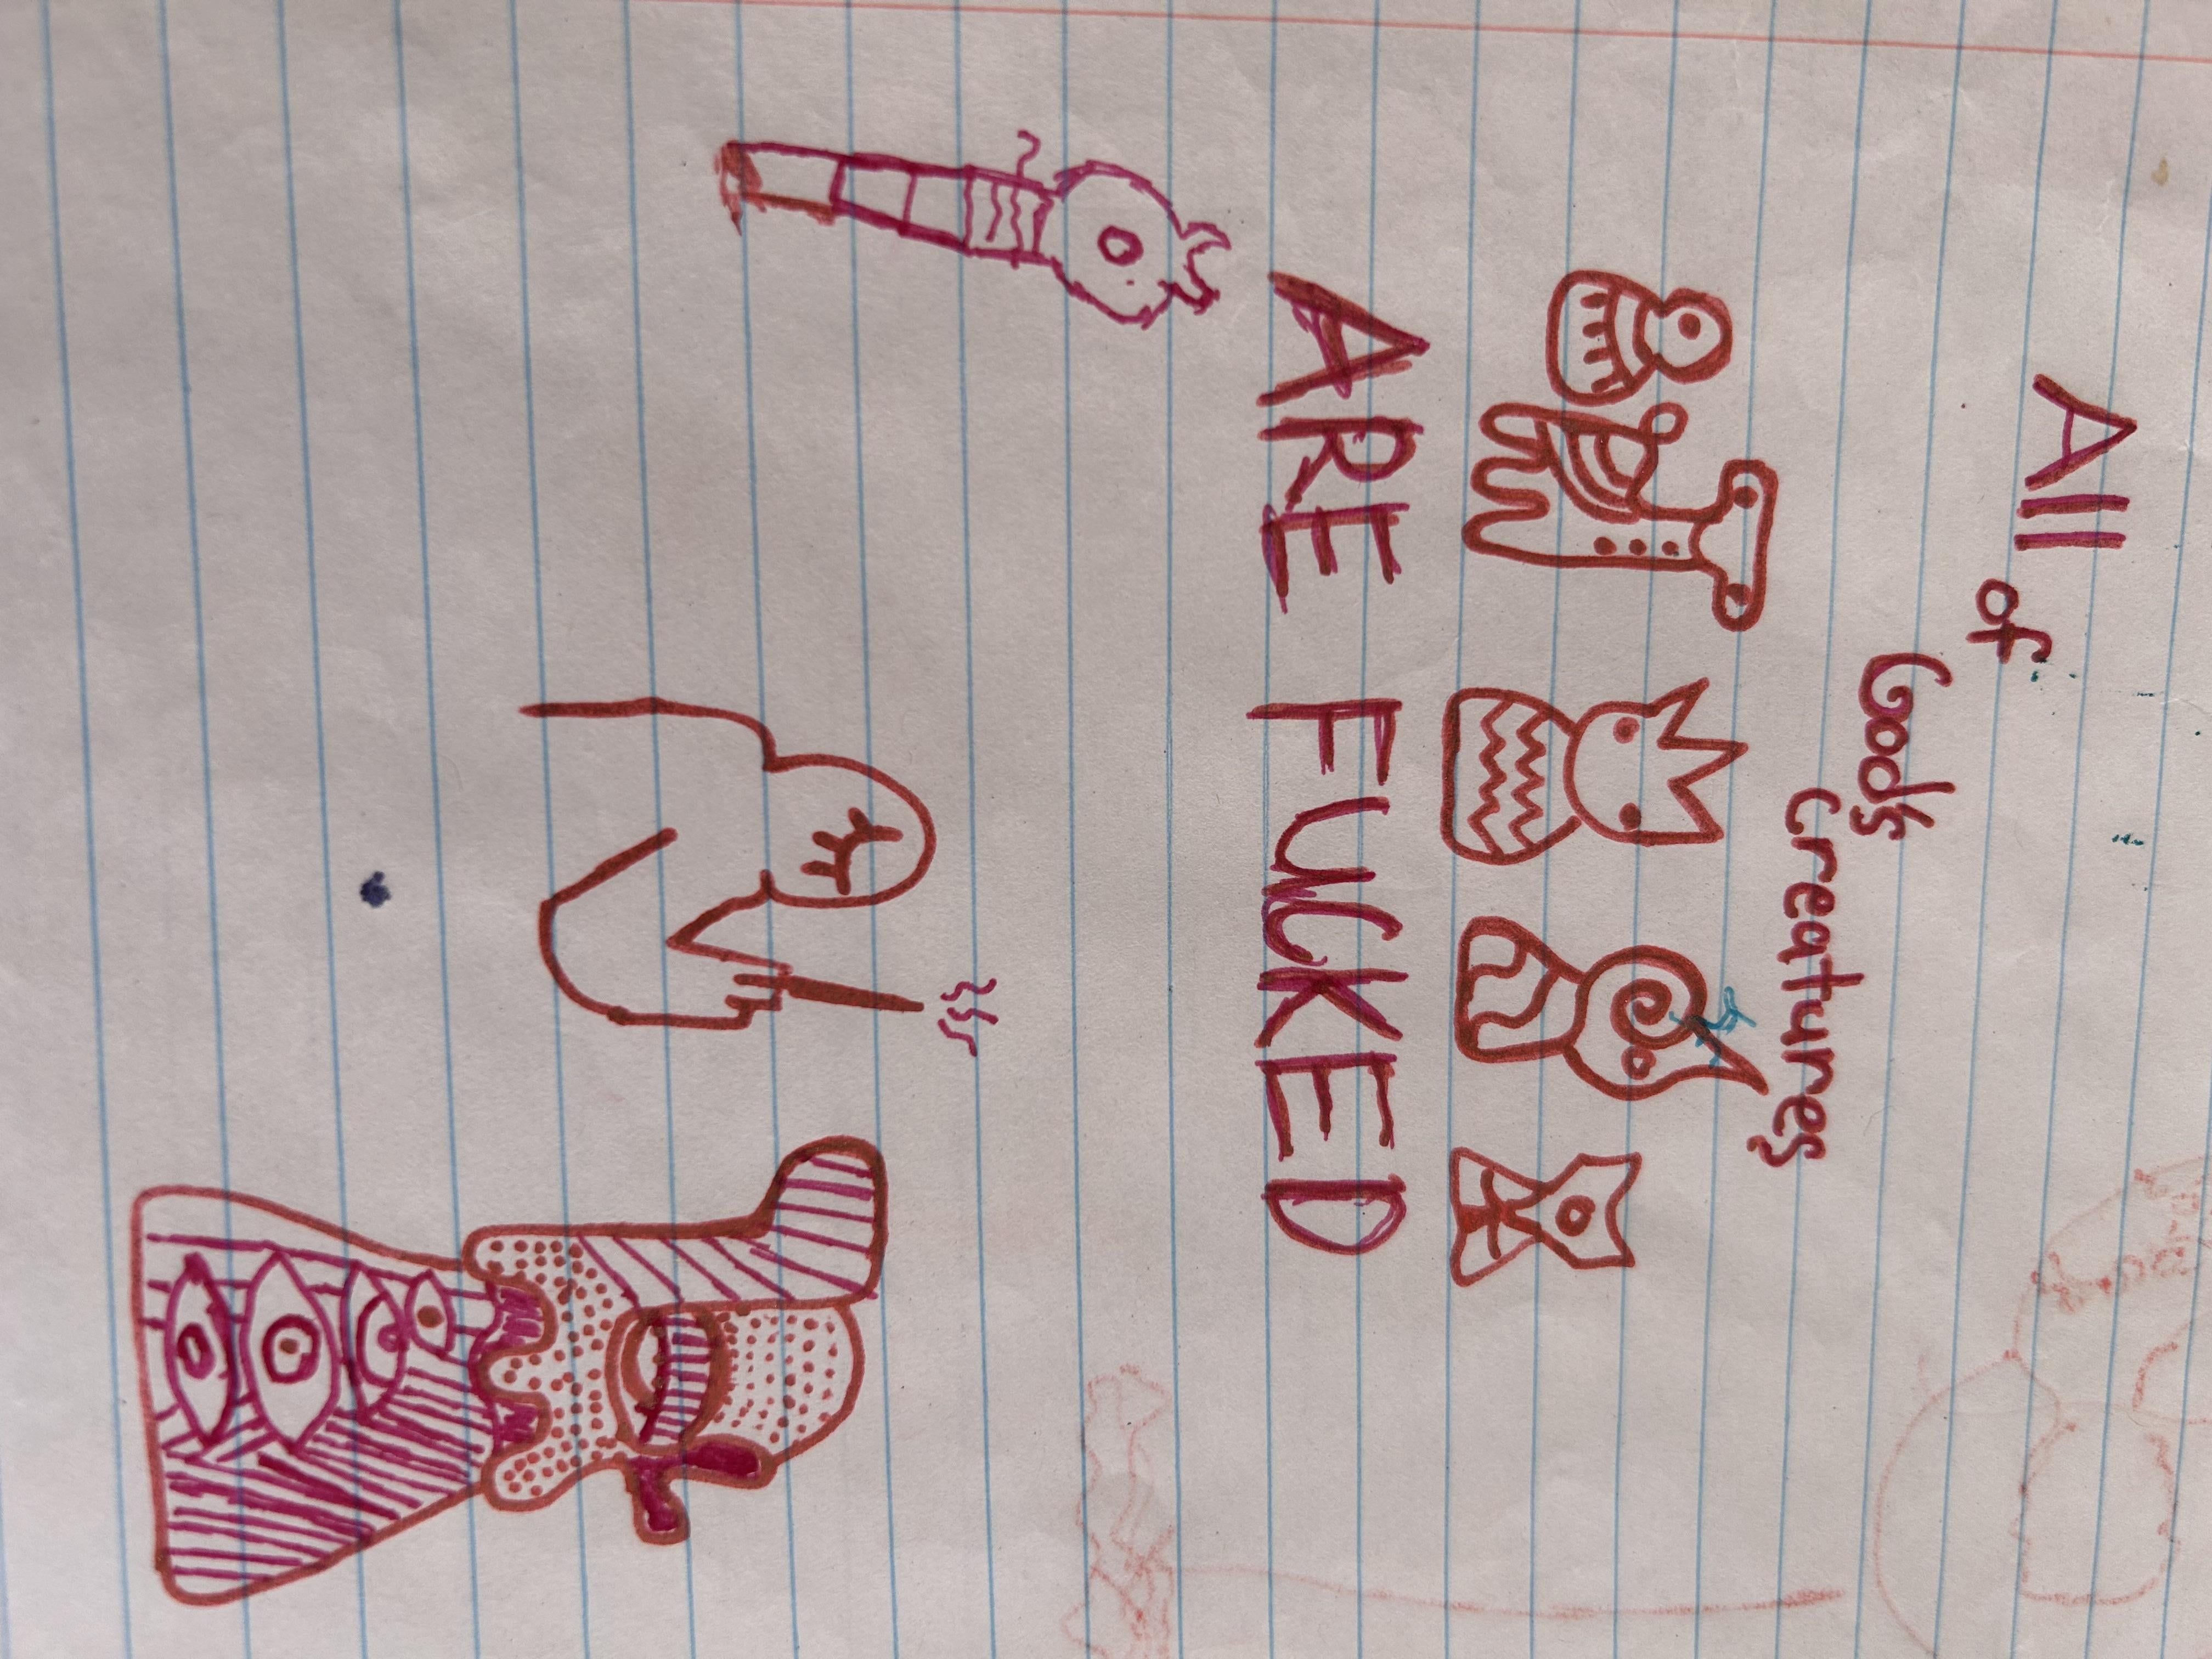 All
of
God's
creatures
ARE FUCKED